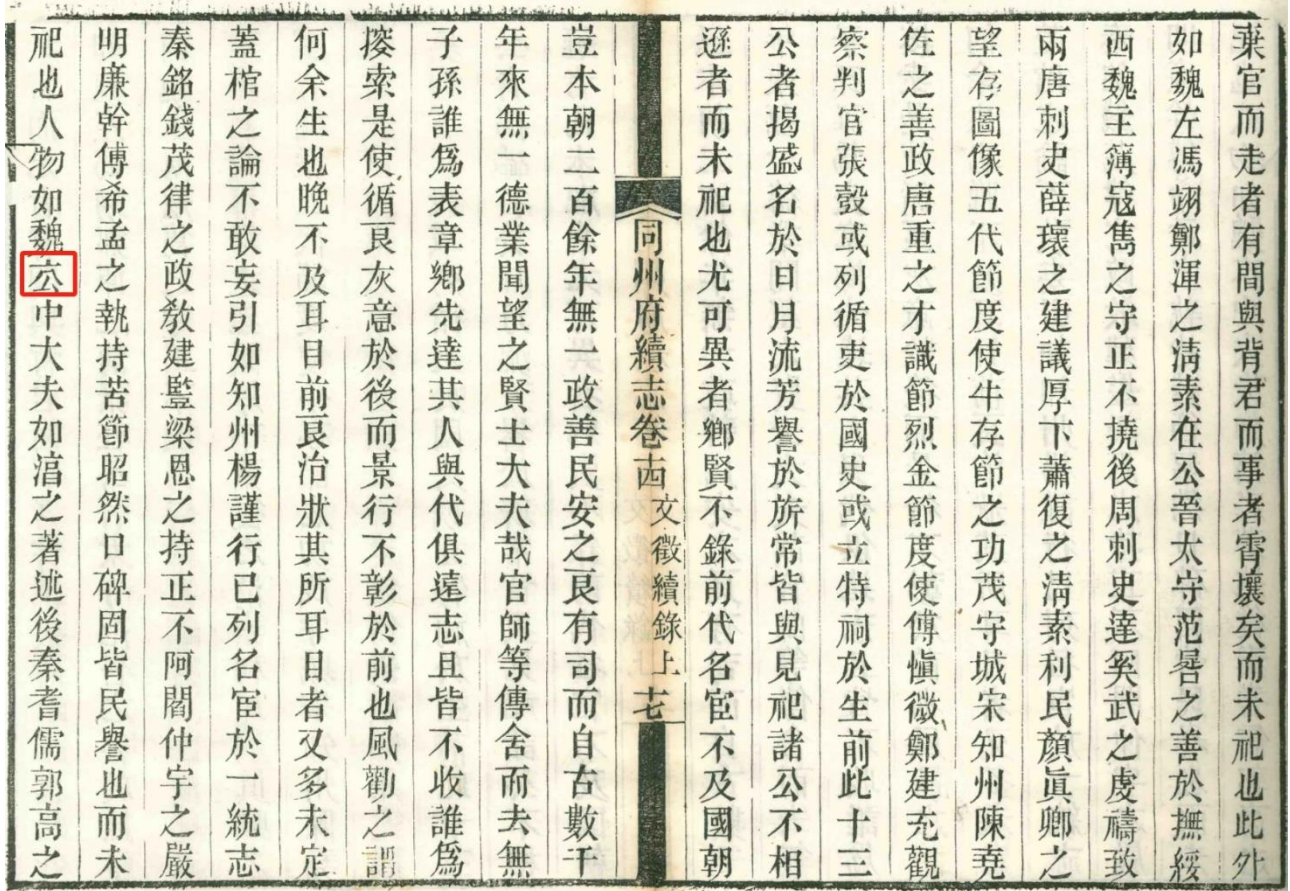 棄官而走者有間與背君而事者霄壤矣而未祀也此外
如魏左馮翊鄭渾之淸素在公晉太守范晷之善於撫綏
西魏主簿寇雋之守正不撓後周刺史達奚武之虔禱致
兩唐刺史薛瓌之建議厚下蕭復之淸素利民顏眞卿之
望存圖像五代節度使牛存節之功茂守城宋知州陳堯
佐之善政唐重之才識節烈金節度使傅愼微鄭建充觀
察判官張瑴或列循吏於國史或立特祠於生前此十三
公者揭盛名於日月流芳譽於旂常皆與見祀諸公不相
遜者而未祀也尤可異者鄕賢不錄前代名宦不及國朝
同州府續志卷十四 文徵續錄上 十七
豈本朝二百餘年無一政善民安之良有司而自古數千
年來無一德業聞望之賢士大夫哉官師等傳舍而去無
子孫誰爲表章鄕先達其人與代俱遠志且皆不收誰爲
搜索是使循良灰意於後而景行不彰於前也風勸之謂
何余生也晚不及耳目前良治狀其所耳目者又多未定
蓋棺之論不敢妄引如知州楊謹行已列名宦於一統志
秦銘錢茂律之政敎建監梁恩之持正不阿閻仲宇之嚴
明廉幹傅希孟之執持苦節昭然口碑固皆民譽也而未
祀也人物如魏中大夫如淯之著述後秦耆儒郭高之